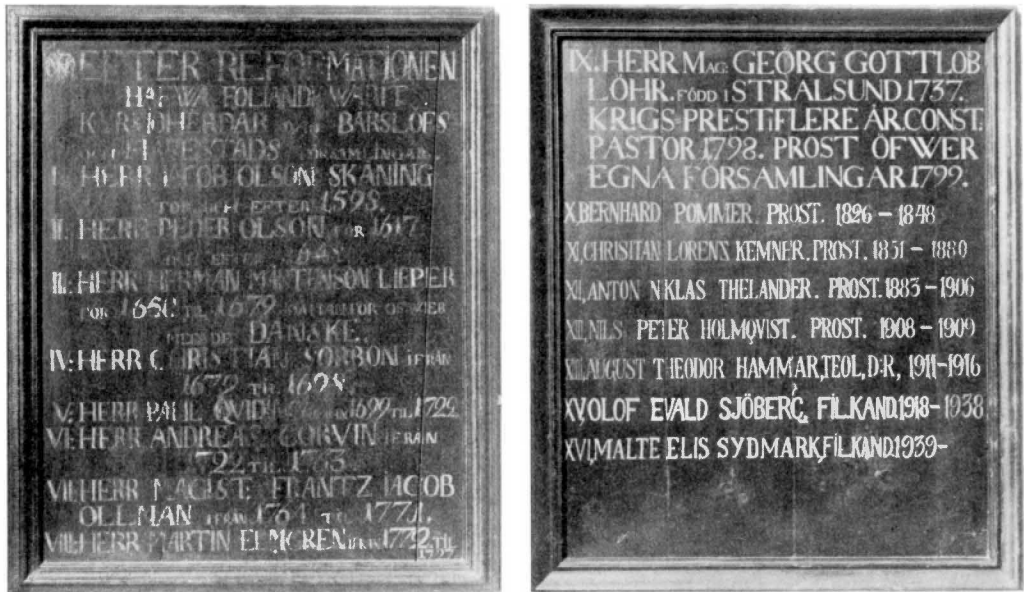 EFTER REFORMATIONEN
HAFWA FÖLIANDE WARIT
KYRKIOHERDAR BARSLÖFS
HERR IACOB OLSON SKANING
FÖR OCH EFTER 1598.
II. HERR PEDER OLSON FÖR 1617
III. HERR HERMAN MÅRTENSON LIEPER
FÖR 1650 TIL 1679
DANSKE.
IV. HERR CHRISTIAN SORBON IFRÅN
1679 TIL 1698.
V. HERR PAUL QVIDI 1699 TIL 1722
VI. HERR ANDREAS CORVIN IFRÅN
1722 TIL 1763.
VII. HERR MAGIST: FRANTZ IACOB
OLLMAN IFRÅN 1764 TIL 1771.
VIII. HERR MARTIN ELMGREN IFRÅN 1772 TIL
IX. HERR MAG: GEORG GOTTLOB
LÖHR. FÖDD I STRALSUND 1737.
KRIGS-PREST I FLERE ÅR. CONST.
PASTOR 1798. PROST ÖFWER
EGNA FÖRSAMLINGAR 1799.
X, BERNHARD POMMER. PROST. 1826 – 1848
XI, CHRISITAN LORENS KEMNER. PROST. 1851 – 1880
XI, ANTON NIKLAS THELANDER. PROST. 1883 – 1906
XII, NILS PETER HOLMQVIST. PROST. 1908 – 1909
XIII, AUGUST THEODOR HAMMAR, TEOL, D:R, 1911–1916
XV, OLOF EVALD SJÖBERG, FIL.KAND. 1918– 1938
XVI, MALTE ELIS SYDMARK, FIL.KAND. 1939–